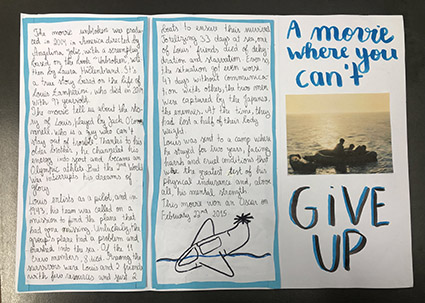 The movie unbroken was produ
ced in 2014 in America directed by
Angelina Jolie, with a screenplay
based on the book "Unbroken", wri
tten by Laura Hillenbrand. It's
a true story based on the life of
Louis Zamperini, who died in 2014
with 97 years old.
The movie tell us about the sto
ry of Louis played by Jack O'Con
nell, who is a "boy who can't
stay out of trouble". Thanks to his
older brother, he channeled his
energy into sport and became an
Olympic athlete. But the 2nd World
war interrupts his dreams of
glory.
Louis enlists as a pilot, and in
1943, his team was called on a
mission to find the plane that
had gone missing. Unluckily, the
group's plane had a problem and
crashed into the sea. Of the 11
crew members, 8 died. Among the
survivors were Louis and 2 friends
with few resources and just 2
boats to ensure their survival.
Totalizing 33 days at sea, one
of Louis' friends died of dehy
dration and starvation. Ensuing,
the situation got even worse.
47 days without communica
tion with other, the two men
were captured by the Japanese,
the enemies. At the time, they
had lost a half of their body
weight.
Louis was sent to a camp where
he stayed for two years, facing
harsh and cruel conditions that
were the greatest test of his
physical endurance and, above
all, his mental strength.
This movie won an Oscar on
February 22nd, 2015
A movie
where you
can't
GIVE
UP